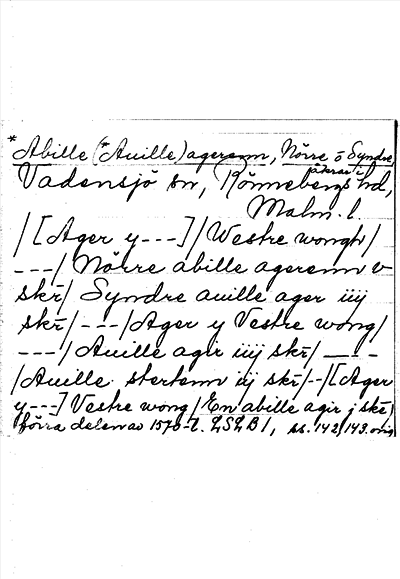 *Abille (*Auille) agerenn, Nörre o Syndre
åkrar i
Vadensjö sn, Rönnebergs hd,
Malm. l.
/ [Ager y ---] / Westre wongh /
--- / Nörre abille agerenn v
skr̄ / Syndre auille ager iiij
skr̄ / --- / Ager y Vestre wong /
--- / Auille agir iiij skr̄ / ---
/ Auille stertenn iij skr̄ / -- / [Ager
y ---] Vestre wong / En abille agir j skr̄ /
förra delen av 1570-t. LSLB 1, ss. 142, 143. orig